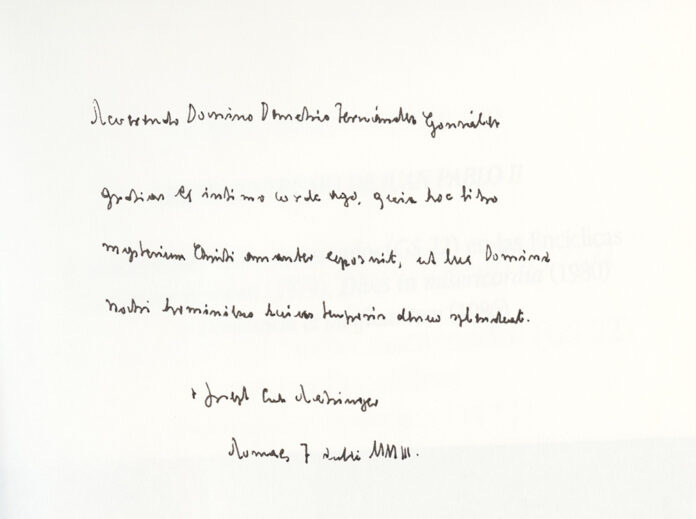 Reverendo Domino Demetrio Fernández González
gratias ex intimo corde ago, quia hoc libro
mysterium Christi amanter exposuit, ut lux Domini
nostri hominibus huius temporis denuo splendeat.
+ Joseph Card. Ratzinger
Romae, 7 Julii MMIII.
PABLO II
en las Encíclicas
Dives in misericordia (1980)